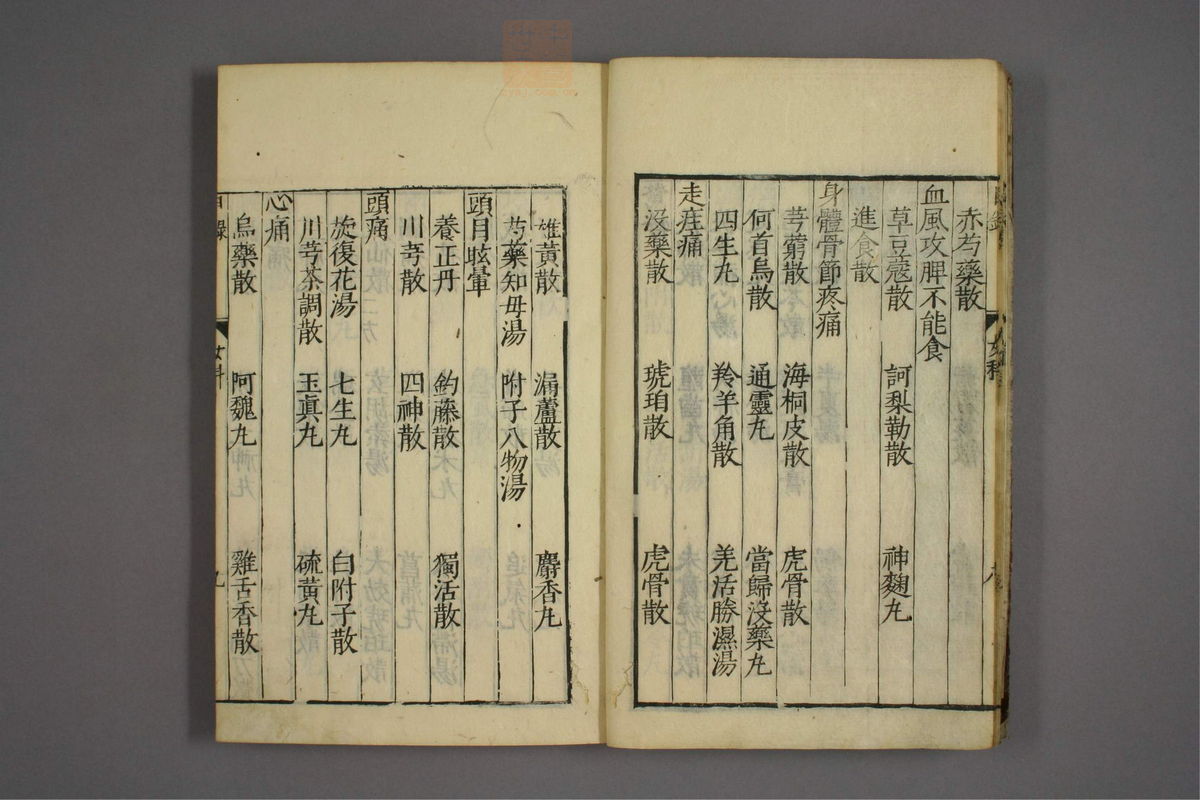 赤芍藥散
血風攻脾不能食
草豆蔻散 訶梨勒散 神麴丸
進食散
身體骨節疼痛
芎藭散 海桐皮散 虎骨散
何首烏散 通靈丸 當歸沒藥丸
四生丸 羚羊角散 羌活勝濕湯
走疰痛
沒藥散 琥珀散 虎骨散
雄黃散 漏蘆散 麝香丸
芍藥知母湯 附子八物湯
頭目眩暈
養正丹 鈎藤散 獨活散
川芎散 四神散
頭痛
旋復花湯 七生丸 白附子散
川芎茶調散 玉真丸 硫黃丸
心痛
烏藥散 阿魏丸 雞舌香散
目錄 女科 九